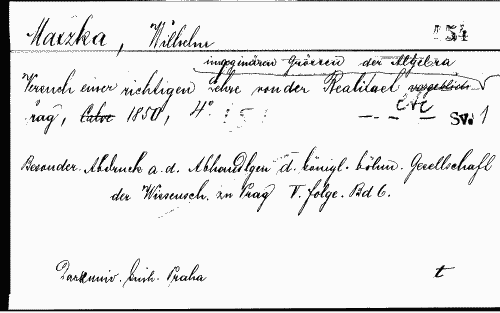 Matzka, Wilhelm 54
imaginären Grössen der Algebra
Versuch einer richtigen Lehre von der Realität vorgeblich
Prag, Calve 1850, 4° Sv. 1
Besonder. Abdruck a. d. Abhandlgen d. königl. böhm. Gesellschaft
der Wissensch. zu Prag V. folge. Bd 6.
Dar univ. knih. Praha t